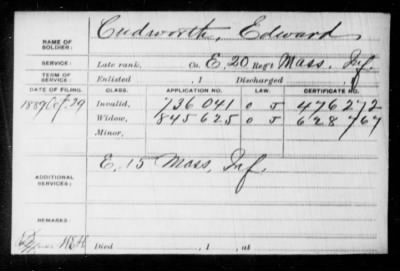 NAME OF SOLDIER: Cudworth, Edward
SERVICE: Late rank, Co. E, 20 Reg't Mass. Inf.
TERM OF SERVICE: Enlisted , 1 Discharged , 1
DATE OF FILING. CLASS. APPLICATION NO. LAW. CERTIFICATE NO.
1889 Oct. 29 Invalid, 736041 0 5 476272
Widow, 845625 0 5 628767
Minor,
ADDITIONAL SERVICES: E, 15 Mass, Inf.
REMARKS:
Died , 1 , at